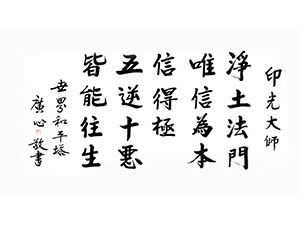 印光大師
淨土法門
唯信為本
信得極
五逆十惡
皆能往生
世界和平塔
廣心敬書